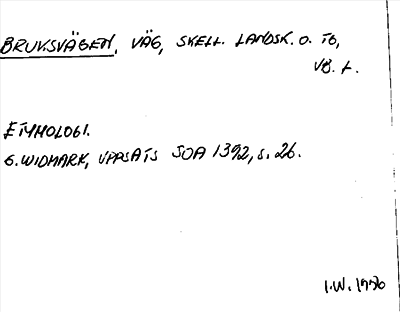 BRUKSVÄGEN, VÄG, SKELL. LANDSK. O. TG,
VB. L.
ETYMOLOGI.
G. WIDMARK, UPPSATS SOA 1392, S. 26.
I.W. 1976